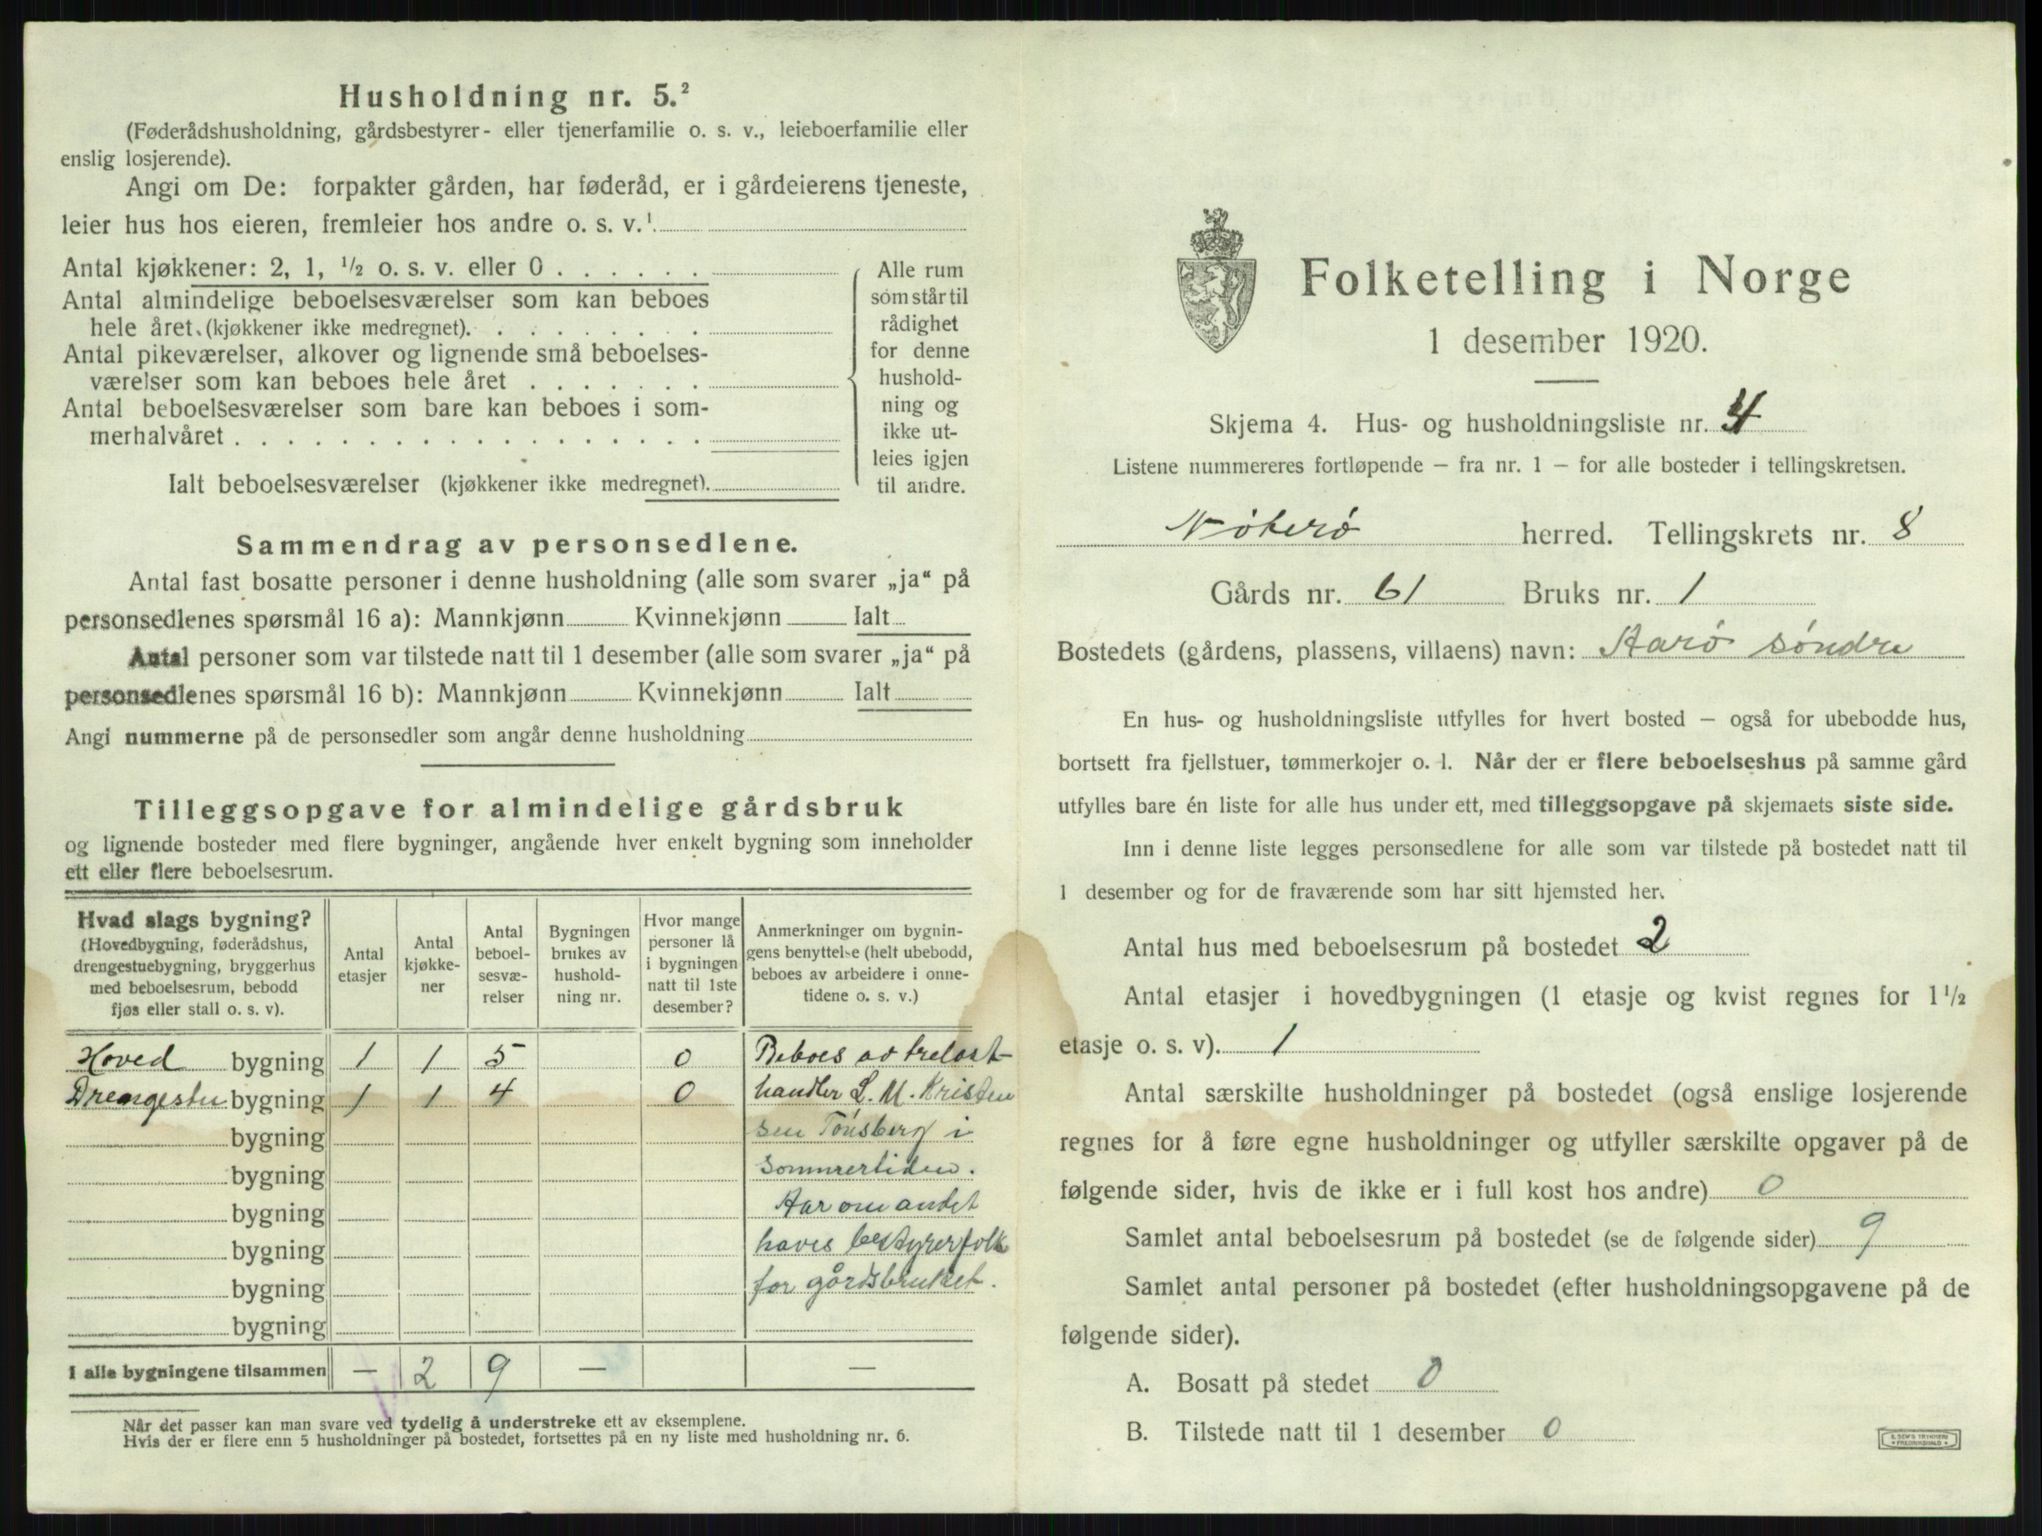 Husholdning nr. 5.²
(Føderådshusholdning, gårdsbestyrer- eller tjenerfamilie o. s. v., leieboerfamilie eller
enslig losjerende).
Angi om De: forpakter gården, har føderåd, er i gårdeierens tjeneste,
leier hus hos eieren, fremleier hos andre o. s. v.¹
Antal kjøkkener: 2, 1, ½ o. s. v. eller 0 . . . . . .
Antal almindelige beboelsesværelser som kan beboes
hele året (kjøkkener ikke medregnet). . . . . . . . .
Antal pikeværelser, alkover og lignende små beboelses-
værelser som kan beboes hele året . . . . . . .
Antal beboelsesværelser som bare kan beboes i som-
merhalvåret . . . . . . . . . . . . . . . . . .
Ialt beboelsesværelser (kjøkkener ikke medregnet).
Alle rum
som står til
rådighet
for denne
hushold-
ning og
ikke ut-
leies igjen
til andre.
Sammendrag av personsedlene.
Antal fast bosatte personer i denne husholdning (alle som svarer „ja“ på
personsedlenes spørsmål 16 a): Mannkjønn Kvinnekjønn Ialt
Antal personer som var tilstede natt til 1 desember (alle som svarer „ja“ på
personsedlenes spørsmål 16 b): Mannkjønn Kvinnekjønn Ialt
Angi nummerne på de personsedler som angår denne husholdning
Tilleggsopgave for almindelige gårdsbruk
og lignende bosteder med flere bygninger, angående hver enkelt bygning som inneholder
ett eller flere beboelsesrum.
Hvad slags bygning?
(Hovedbygning, føderådshus,
drengestuebygning, bryggerhus
med beboelsesrum, bebodd
fjøs eller stall o. s. v).
Antal
etasjer
Antal
kjøkke-
ner
Antal
beboel-
sesvæ-
relser
Bygningen
brukes av
hushold-
ning nr.
Hvor mange
personer lå
i bygningen
natt til 1ste
desember?
Anmerkninger om bygnin-
gens benyttelse (helt ubebodd,
beboes av arbeidere i onne-
tidene o. s. v.)
Hoved bygning 1 1 5 0 Beboes av trelast-
Drengestu bygning 1 1 4 0 handler L. M. Kristen
bygning sen Tønsberg i
bygning sommertiden.
bygning Aar om andet
bygning haves bestyrerfolk
bygning for gårdsbruket.
bygning
I alle bygningene tilsammen — 2 9 — —
Når det passer kan man svare ved tydelig å understreke ett av eksemplene.
Hvis der er flere enn 5 husholdninger på bostedet, fortsettes på en ny liste med husholdning nr. 6.
Folketelling i Norge
1 desember 1920.
Skjema 4. Hus- og husholdningsliste nr. 4
Listene nummereres fortløpende – fra nr. 1 – for alle bosteder i tellingskretsen.
Nøterø herred. Tellingskrets nr. 8
Gårds nr. 61 Bruks nr. 1
Bostedets (gårdens, plassens, villaens) navn: Aarø søndre
En hus- og husholdningsliste utfylles for hvert bosted – også for ubebodde hus,
bortsett fra fjellstuer, tømmerkojer o. l. Når der er flere beboelseshus på samme gård
utfylles bare én liste for alle hus under ett, med tilleggsopgave på skjemaets siste side.
Inn i denne liste legges personsedlene for alle som var tilstede på bostedet natt til
1 desember og for de fraværende som har sitt hjemsted her.
Antal hus med beboelsesrum på bostedet 2
Antal etasjer i hovedbygningen (1 etasje og kvist regnes for 1½
etasje o. s. v). 1
Antal særskilte husholdninger på bostedet (også enslige losjerende
regnes for å føre egne husholdninger og utfyller særskilte opgaver på de
følgende sider, hvis de ikke er i full kost hos andre) 0
Samlet antal beboelsesrum på bostedet (se de følgende sider) 9
Samlet antal personer på bostedet (efter husholdningsopgavene på de
følgende sider).
A. Bosatt på stedet 0
B. Tilstede natt til 1 desember 0